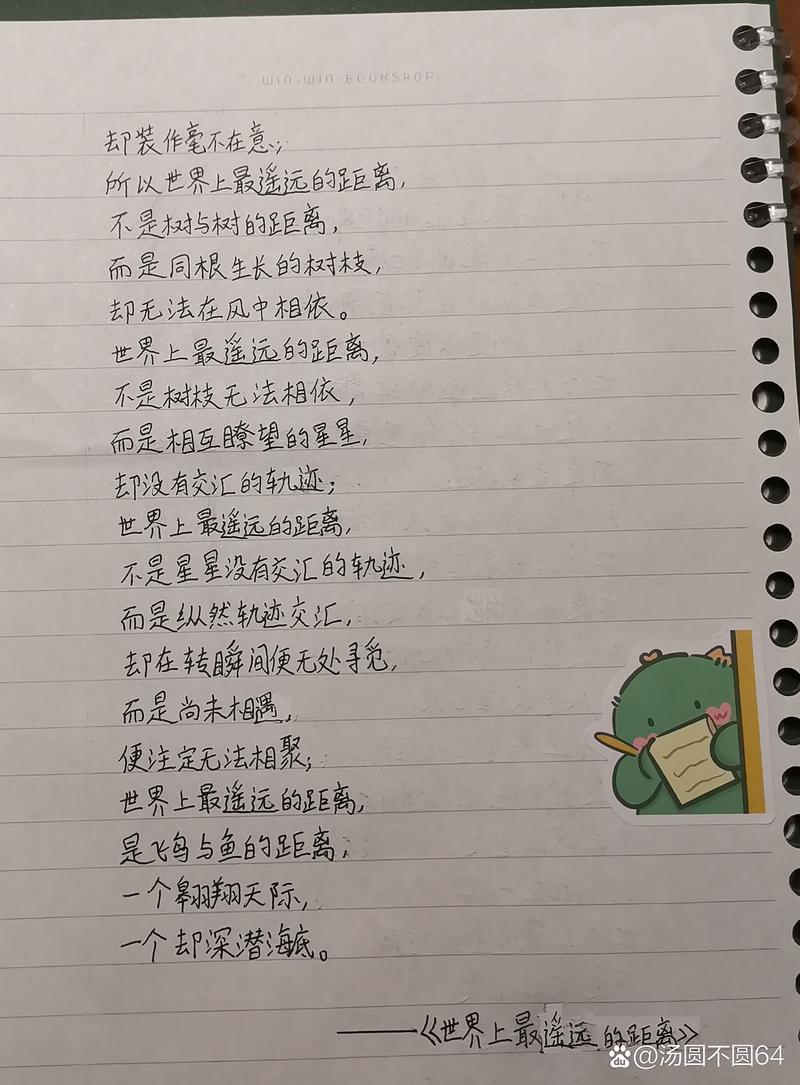 WIN·WIN BOOKSHOP
却装作毫不在意;
所以世界上最遥远的距离,
不是树与树的距离,
而是同根生长的树枝,
却无法在风中相依。
世界上最遥远的距离,
不是树枝无法相依,
而是相互瞭望的星星,
却没有交汇的轨迹;
世界上最遥远的距离,
不是星星没有交汇的轨迹,
而是纵然轨迹交汇,
却在转瞬间便无处寻觅,
而是尚未相遇,
便注定无法相聚;
世界上最遥远的距离,
是飞鸟与鱼的距离;
一个翱翔天际,
一个却深潜海底。
——《世界上最遥远的距离》
du @汤圆不圆64